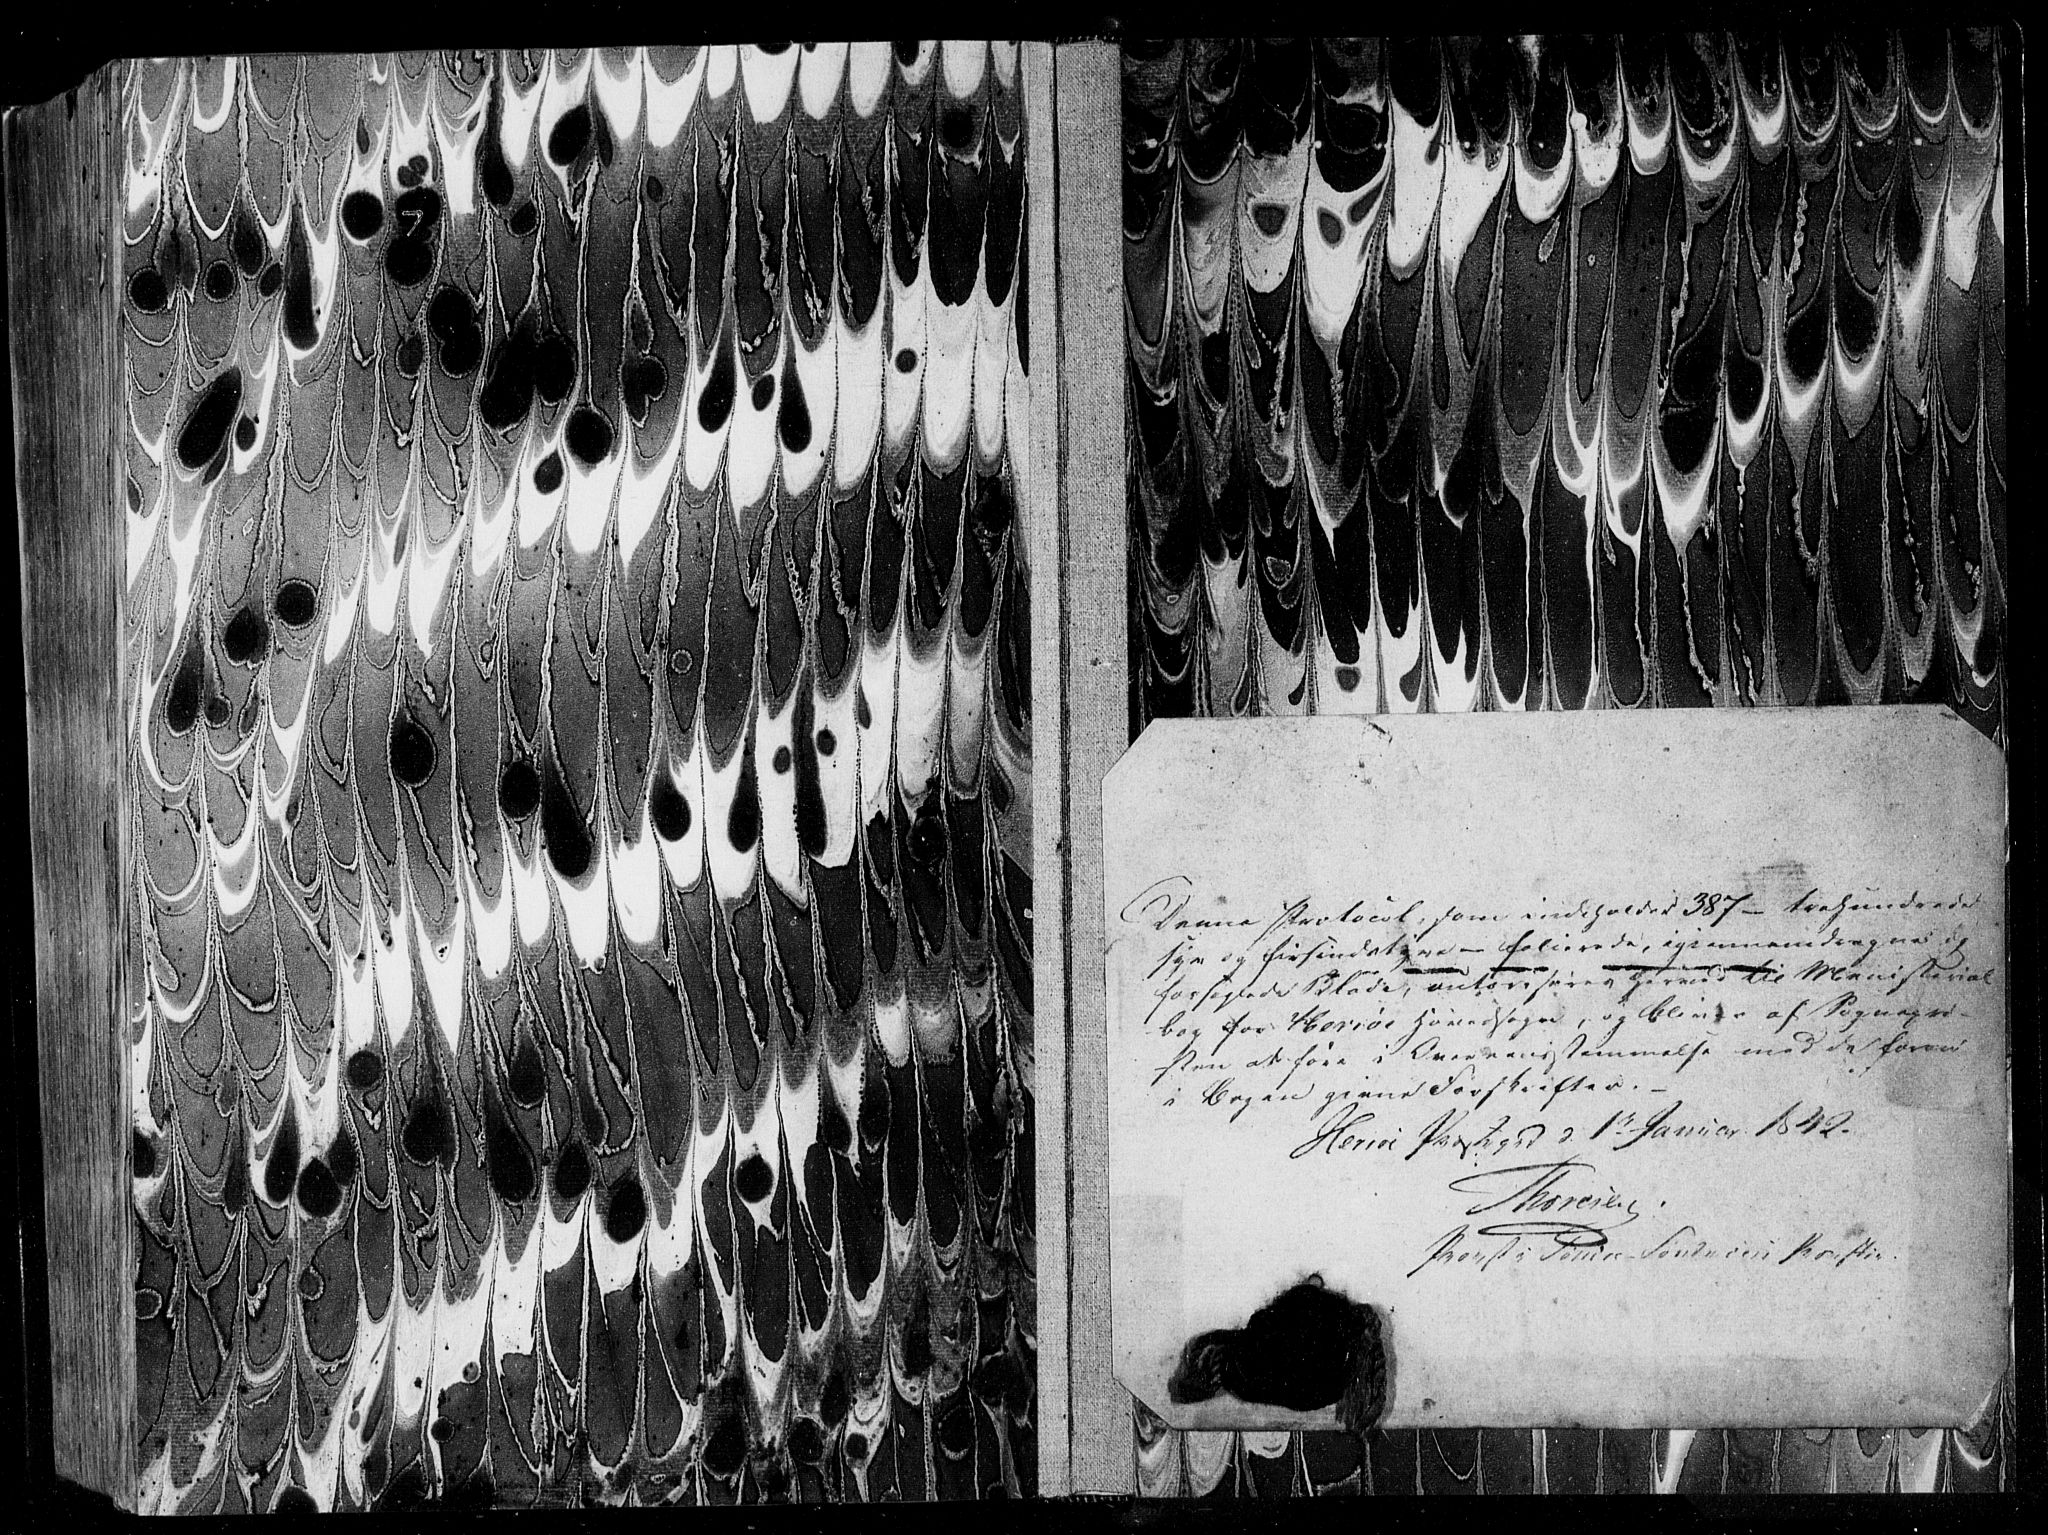 Denne Protocol, som indeholder 387 – trehundrede
syv og firsindstyve – folierede, igjennemdragne og
forseglede Blade, autoriseres herved til Ministerial
bog for Herröe Hovedsogn, og bliver af Sognepræ-
sten at före i Overeensstemmelse med de foran
i Bogen givne Forskrifter. –
Heröe Præstgrd d. 1ste Januar 1842.
Thoresen.
Provst i Söndre-Söndmöre Provstie.